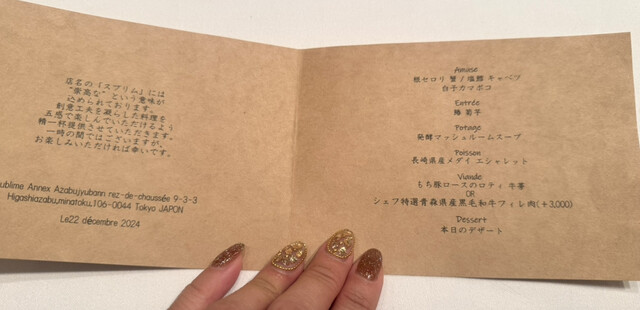 店名の「スブリム」には
"崇高な" という意味が
込められております。
創意工夫を凝らした料理を
五感で楽しんでいただけるよう
精一杯提供させていただきます。
一時の間ではございますが、
お楽しみいただければ幸いです。
ublime Annex Azabujyubann rez-de-chaussée 9-3-3
Higashiazabu,minatoku,106-0044 Tokyo JAPON
Le22 décembre 2024
Amuse
根セロリ 蟹 / 塩鱈 キャベツ
白子カマボコ
Entrée
鰆 菊芋
Potage
発酵マッシュルームスープ
Poisson
長崎県産メダイ エシャレット
Viande
もち豚ロースのロティ 牛蒡
OR
シェフ特選青森県産黒毛和牛フィレ肉(+3,000)
Dessert
本日のデザート